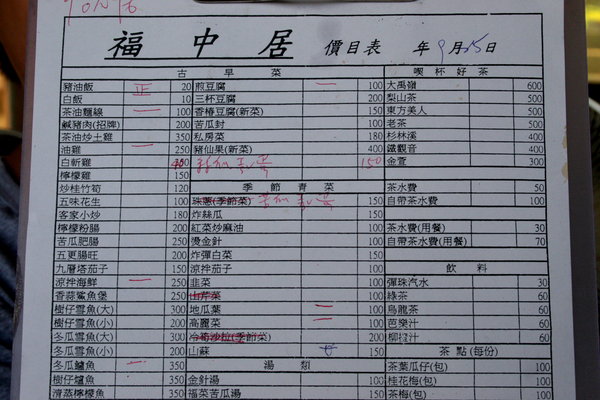 福中居 價目表 年9月25日
古早菜 喫杯好茶
豬油飯 正 20 煎豆腐 一 100 大禹嶺 600
白飯 10 三杯豆腐 200 梨山茶 500
茶油麵線 一 100 香椿豆腐(新菜) 150 東方美人 500
鹹豬肉(招牌) 200 苦瓜封 100 老茶 500
茶油炒土雞 350 私房菜 180 杉林溪 400
油雞 一 350 豬仙果(新菜) 350 鐵觀音 400
白斬雞 150 金萱 300
檸檬雞 150
炒桂竹筍 120 季節青菜 茶水費 50
五味花生 100 珠蔥(季節菜) 自帶茶水費 100
客家小炒 180 炸絲瓜 150
檸檬粉腸 200 紅菜炒麻油 100 茶水費(用餐) 30
苦瓜肥腸 250 燙金針 100 自帶茶水費(用餐) 70
五更腸旺 200 炸彈白菜 150
九層塔茄子 150 涼拌茄子 100 飲料
涼拌海鮮 一 250 韭菜 100 彈珠汽水 30
香蒜鯊魚煲 250 山芹菜 100 綠茶 60
樹仔雪魚(大) 300 地瓜葉 二 100 烏龍茶 60
樹仔雪魚(小) 200 高麗菜 二 100 芭樂汁 60
冬瓜雪魚(大) 300 冷筍沙拉(季節菜) 200 柳橙汁 60
冬瓜雪魚(小) 200 山蘇 150 茶點(每份)
冬瓜鱸魚 一 350 湯類 茶葉瓜仔(包) 100
樹仔鱸魚 350 金針湯 100 桂花梅(包) 100
清蒸檸檬魚 350 福菜苦瓜湯 150 茶梅(包) 100